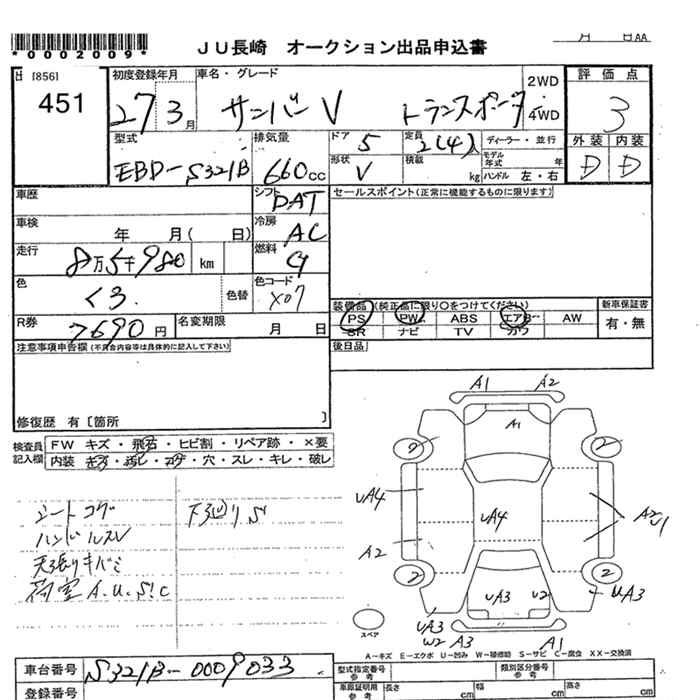 *0002009*
JU長崎 オークション出品申込書
月 日 AA
[856]
451
初度登録年月
27 3月
車名・グレード
サンバーV トランスポータ
2WD
・
4WD
評価点
3
型式
EBD-S321B
排気量
660cc
ドア 5
定員 2(4)人
ディーラー・並行
外装 内装
形状 V
積載 kg
モデル年式 年
ハンドル 左・右
D D
車歴
シフト DAT
セールスポイント(正常に機能するものに限ります)
車検 年 月( 日)
冷房 AC
走行 8万5千980 km
燃料 G
色 クロ
色替
色コード X07
装備品(純正品に限り○をつけてください)
新車保証書
PS PW ABS エアB AW
有・無
SR ナビ TV カワ
R券 7690円
名変期限 月 日
注意事項申告欄(不具合内容等は具体的に記入して下さい)
後日品
修復歴 有[箇所 ]
検査員記入欄
FW キズ・飛石・ヒビ割・リペア跡・×要
内装 キズ・汚レ・コゲ・穴・スレ・キレ・破レ
シートコゲ 下廻りS
ハンドルスレ
天張りキバミ
荷室A.U.S!C
A1 A2
A1
2 2
UA4 UA4 A2 U1
A2
2 2
UA3 U2 UA3
UA3
W2 A3 A1
スペア
A-キズ E-エクボ U-凹み W-補修跡 S-サビ C-腐食 XX-交換済
車台番号 S321B-0009033
型式指定番号 参考
類別区分番号 参考
登録番号
車庫証明用 参考
長さ cm
幅 cm
高さ cm